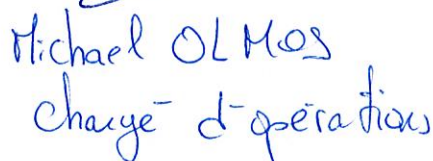 Michael OLMOS
Chargé d'opérations